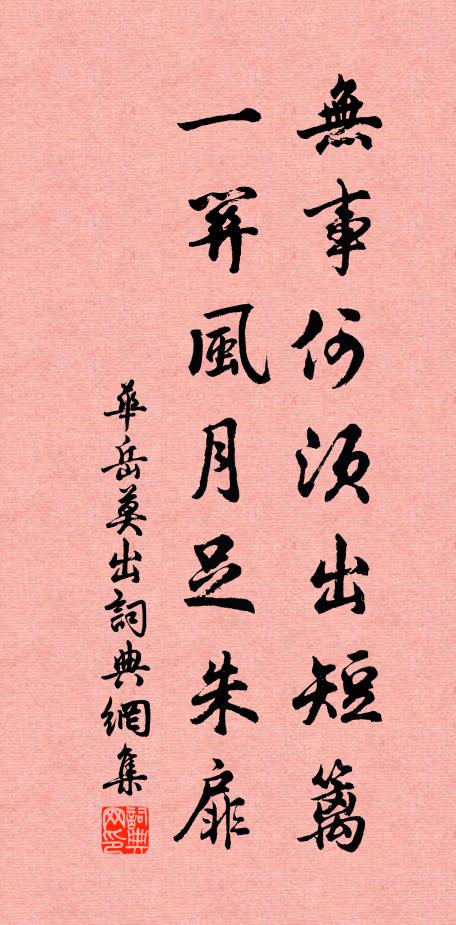 無事何須出短籬
一笄風月足朱扉
華岳莫出詞典網集
詞典网印